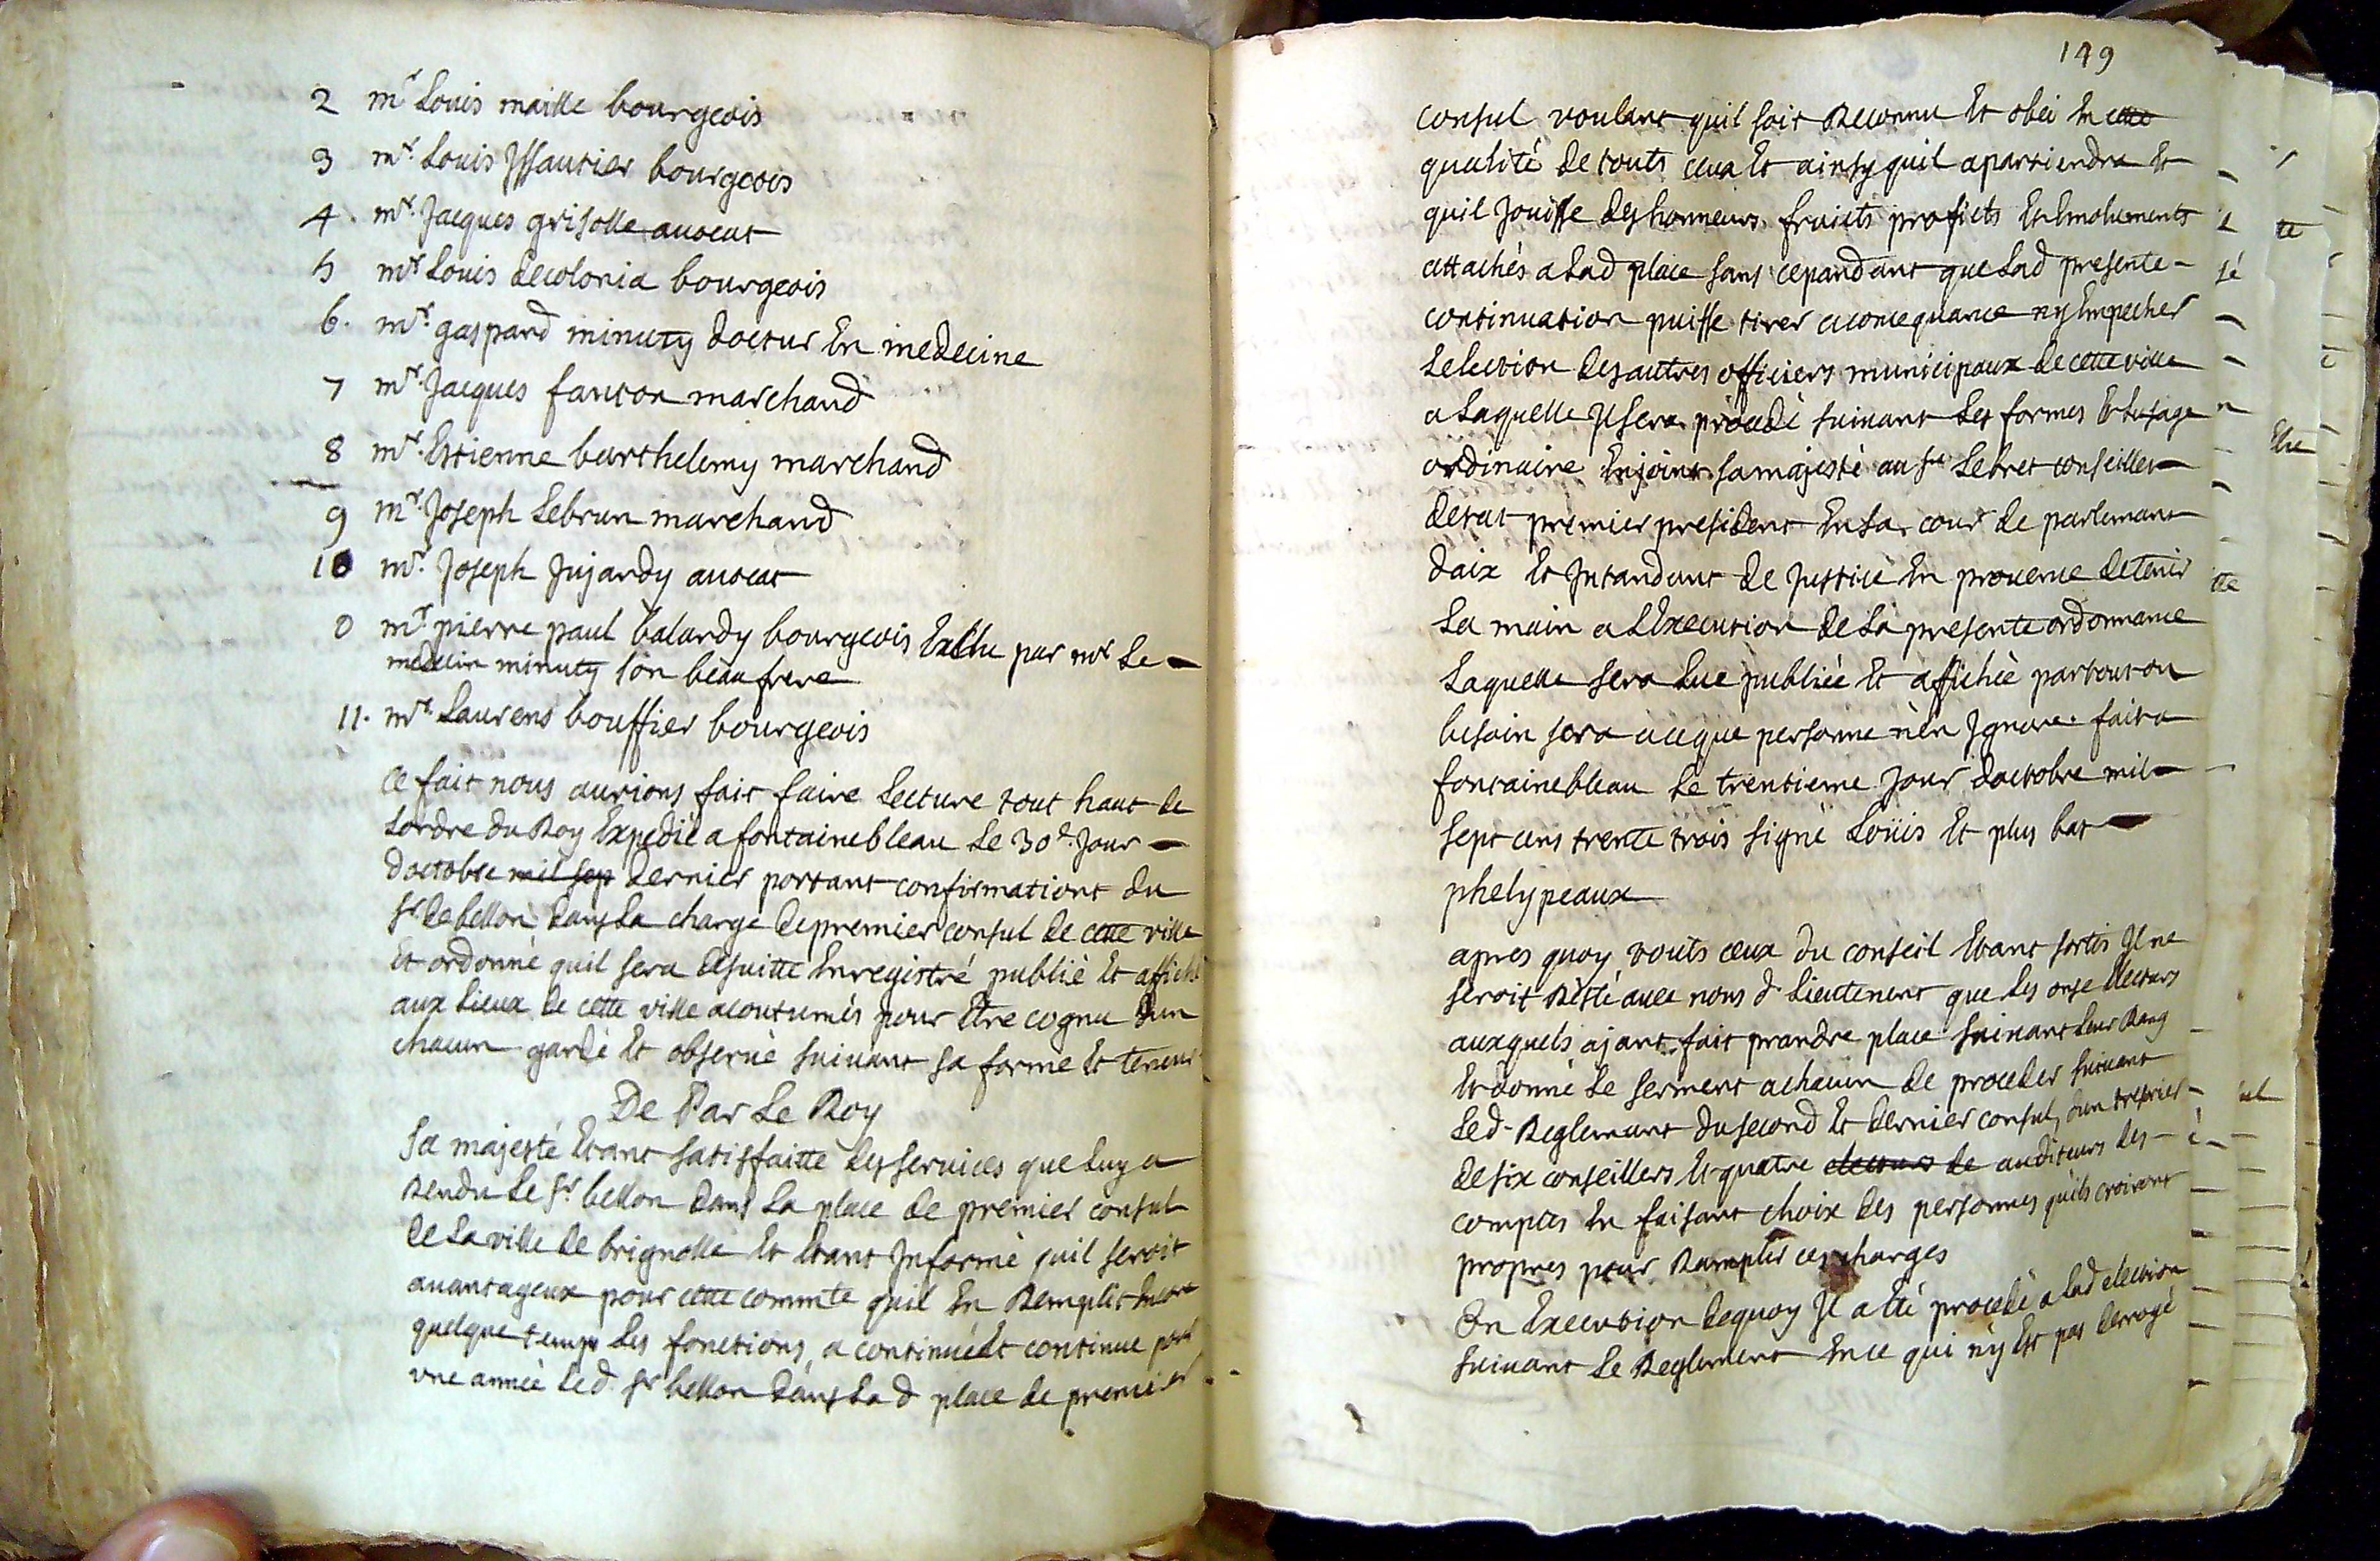 2 mr Louis maille bourgeois
3 mr. Louis Jssautier bourgeois
4. mr. Jacques grisolle avocat
5 mr Louis decolonia bourgeois
6. mr. gaspard minuty docteur En medecine
7 mr. Jacques fanton marchand
8 mr. Estienne barthelemy marchand
9 mr. Joseph Lebrun marchand
10 mr. Joseph Jujardy avocat
0 mr pierre paul balardy bourgeois Exclu par mr Le
medecin minuty son beau frere
11. mr. Laurens bouffier bourgeois
Ce fait nous aurions fait faire Lecture tout haut de
Lordre du Roy Expedié a fontainebleau Le 30e. Jour
doctobre mil sep dernier portant confirmationt du
sr de bellon dans La charge de premier consul de cette ville
Et ordonné quil sera Ensuitte Enregistré publié Et affiché
aux Lieux de cette ville acoutumés pour Etre cognu dun
chacun gardé Et observé suivant sa forme Et teneur
De Par Le Roy
Sa majesté Etant satisfaitte des services que Luy a
Rendu Le sr bellon dans La place de premier consul
de La ville de brignolle Et Etant Jnformé quil seroit
avantageux pour cette commte quil En Remplit Encore
quelque temps Les fonctions, a continué Et continue pour
vne année Led. sr bellon dans Lad place de premier
149
consul voulant quil soit Reconnu Et obei En cette
qualité de touts ceux Et ainsy quil apartiendra Et
quil Jouisse des honneurs fruits profits Et Emoluments
attachés a Lad place sans cepandant que Lad presente
continuation puisse tirer a concequance ny Empecher
Lelection des autres officiers municipaux de cette ville
a Laquelle Jl sera procedé suivant Les formes Et Lusage
ordinaire Enjoint sa majesté au sr Lebret conseiller
detat premier president En sa cour de parlemant
daix Et Jntandant de Justice En provence de tenir
La main a LExecution de La presente ordonnance
Laquelle sera Lue publiée Et affichée partout ou
besoin sera a ce que personne nen Jgnore. fait a
fontainebleau Le trentieme Jour doctobre mil
sept cens trente trois signé Loüis Et plus bas
phelypeaux
apres quoy touts ceux du conseil Etant sortis Jl ne
seroit Resté avec nous d. Lieutenent que Les onze Electeurs
auxquels ajant fait prandre place suivant Leur Rang
Et donné Le serment a chacun de proceder suivant
Led. Reglemant du second Et dernier consul, dun tresorier
de six conseillers Et quatre electeurs de auditeurs des
comptes En faisant choix des personnes quils croiront
propres pour Ramplir ces charges
En Execution de quoy Jl a Eté procedé a Lad election
suivant Le Reglement En ce qui ny Est pas derrogé